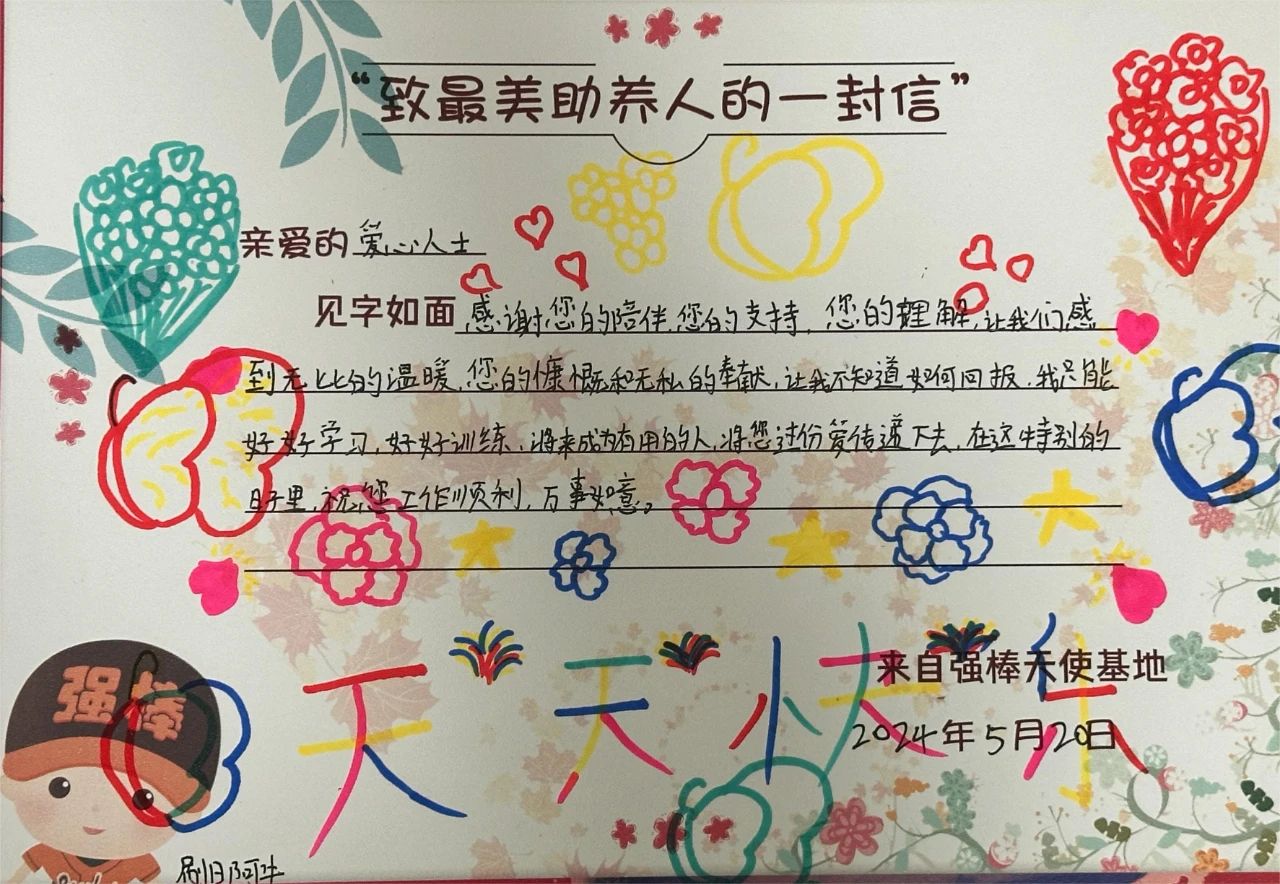 “致最美助养人的一封信”
亲爱的爱心人士
见字如面 感谢您的陪伴,您的支持,您的理解,让我们感
到无比的温暖,您的慷慨和无私的奉献,让我不知道如何回报,我只能
好好学习,好好训练,将来成为有用的人,将您这份爱传递下去,在这特别的
日子里,祝您工作顺利,万事如意。
天天快乐
来自强棒天使基地
2024年5月20日
强棒